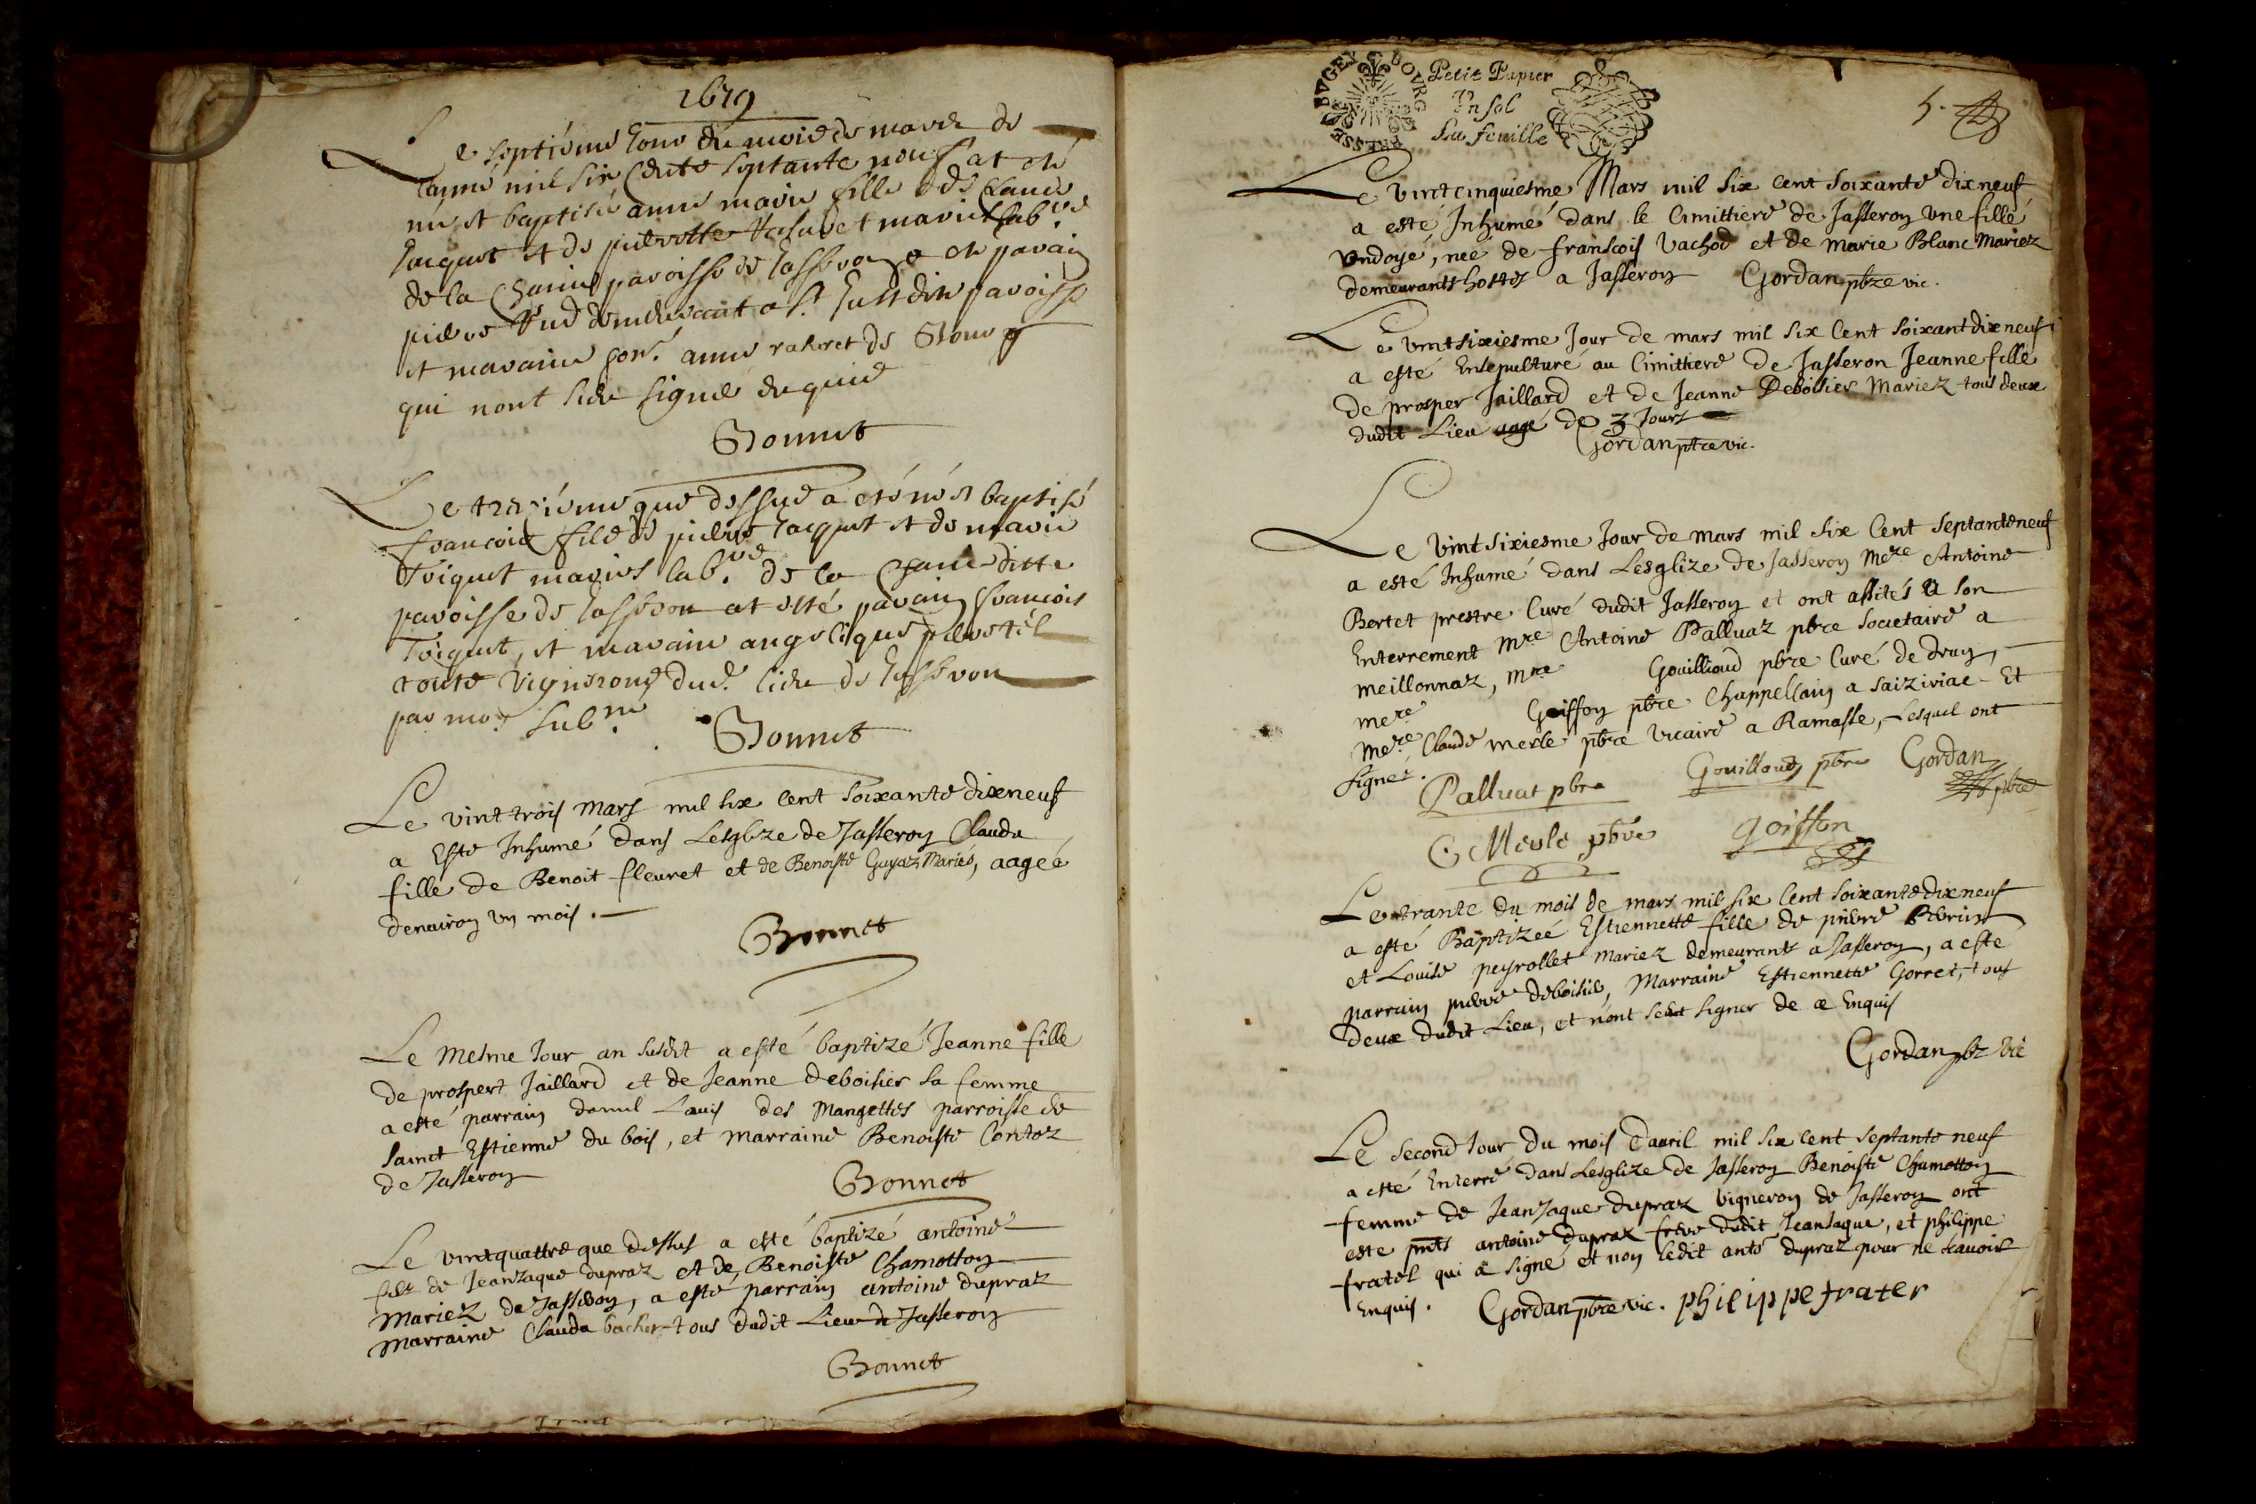 1679
Le septiéme Jour du mois de mars de
l'anné mil six Cents septante neuf at eté
né et baptisé anne marie fille de Claude
Jacquet et de pierrette mariés lab.rs
de la Chanie paroisse de Jasseron a eté parain
pierre demeurant a St. Just dite paroisse
et maraine hon. anne raheret de
qui nont sceu signé enquis
Bonnet
Le que dessus a eté né et baptisé
francois fils de pierre Jacquet et de marie
Toiquet mariés lab.rs de la Chanie ditte
paroisse de Jasseron at esté parain francois
Toiquet, et maraine angelique
touts vignerons dud. lieu de Jasseron
par moy sub.né
Bonnet
Le vint trois mars mil six cent soixante dixneuf
a Este Inhumé dans Lesglize de Jasseron Clauda
fille de Benoit fleuret et de Benoiste Guyaz Mariés, aagée
denuiron vn mois.
Bonnet
Le mesme Jour an susdit a esté baptizé Jeanne fille
de prospert Jaillard et de Jeanne deboisier sa femme
a esté parrain Lauis des Mangettes parroisse de
sainct Estienne du bois, et marraine Benoiste Contoz
de Jasseron
Bonnet
Le vintquattre que dessus a esté baptizé antoine
filz de Jeanzaque dupraz et de Benoiste Chamotton
Mariez de Jasseron, a este parrain antoine dupraz
marraine Clauda bacher tous dudit Lieu de Jasseron
Bonnet
BOVRG BVGEY BRESSE
Petit Papier
Vn sol
La feuille
5.
Le vintcinquiesme Mars mil six cent soixante dixneuf
a esté Inhumé dans le Cimittiere de Jasseron vne fille
vndoyé, neé de fransois Vachod et de Marie Blanc Mariez
demeurants hostes a Jasseron Gordan pbre vic.
Le vintsixiesme Jour de mars mil six Cent soixantdixneuf
a esté Ensepulturé au Cimittiere de Jasseron Jeanne fille
de prosper Jaillard et de Jeanne Deboisier Mariez tous deux
dudit Lieu aagé de 3 Jours
Gordan pbre vic.
Le vintsixiesme Jour de mars mil six Cent septanteneuf
a esté Inhumé dans Lesglize de Jasseron Mere Antoine
Bertet prestre Curé dudit Jasseron et ont assités a son
Enterrement Mre Antoine Palluaz pbre societaire a
meillonnaz, mre Gouilloud pbre Curé de drug,
mere Goiffon pbre Chappellain a saiziriac - Et
mere Claude Merle pbre vicaire a Ramasse, Lesquel ont
signez.
Palluat pbre Gouilloud pbre Gordan pbre
C. Merle pbre goiffon
Le trante du mois de mars mil six Cent soixante dixneuf
a esté Baptizeé Estiennette fille de pierre
et Louise peyrollet Mariez demeurants a Jasseron, a este
parrain pierre deboisie, Marraine Estiennette Gorret, tous
deux dudit Lieu, et n'ont seut signer de ce Enquis
Gordan pbr vic
Le second Jour du mois Dauril mil six cent septante neuf
a esté Enterré dans Lesglize de Jasseron Benoiste Chamotton
femme de JeanJaque dupraz vigneron de Jasseron ont
este pnts antoine dupraz frere dudit JeanJaque, et philippe
fratel qui a signé et non ledit anto. dupraz pour ne scauoir
Enquis. Gordan pbre vic. philippe frater